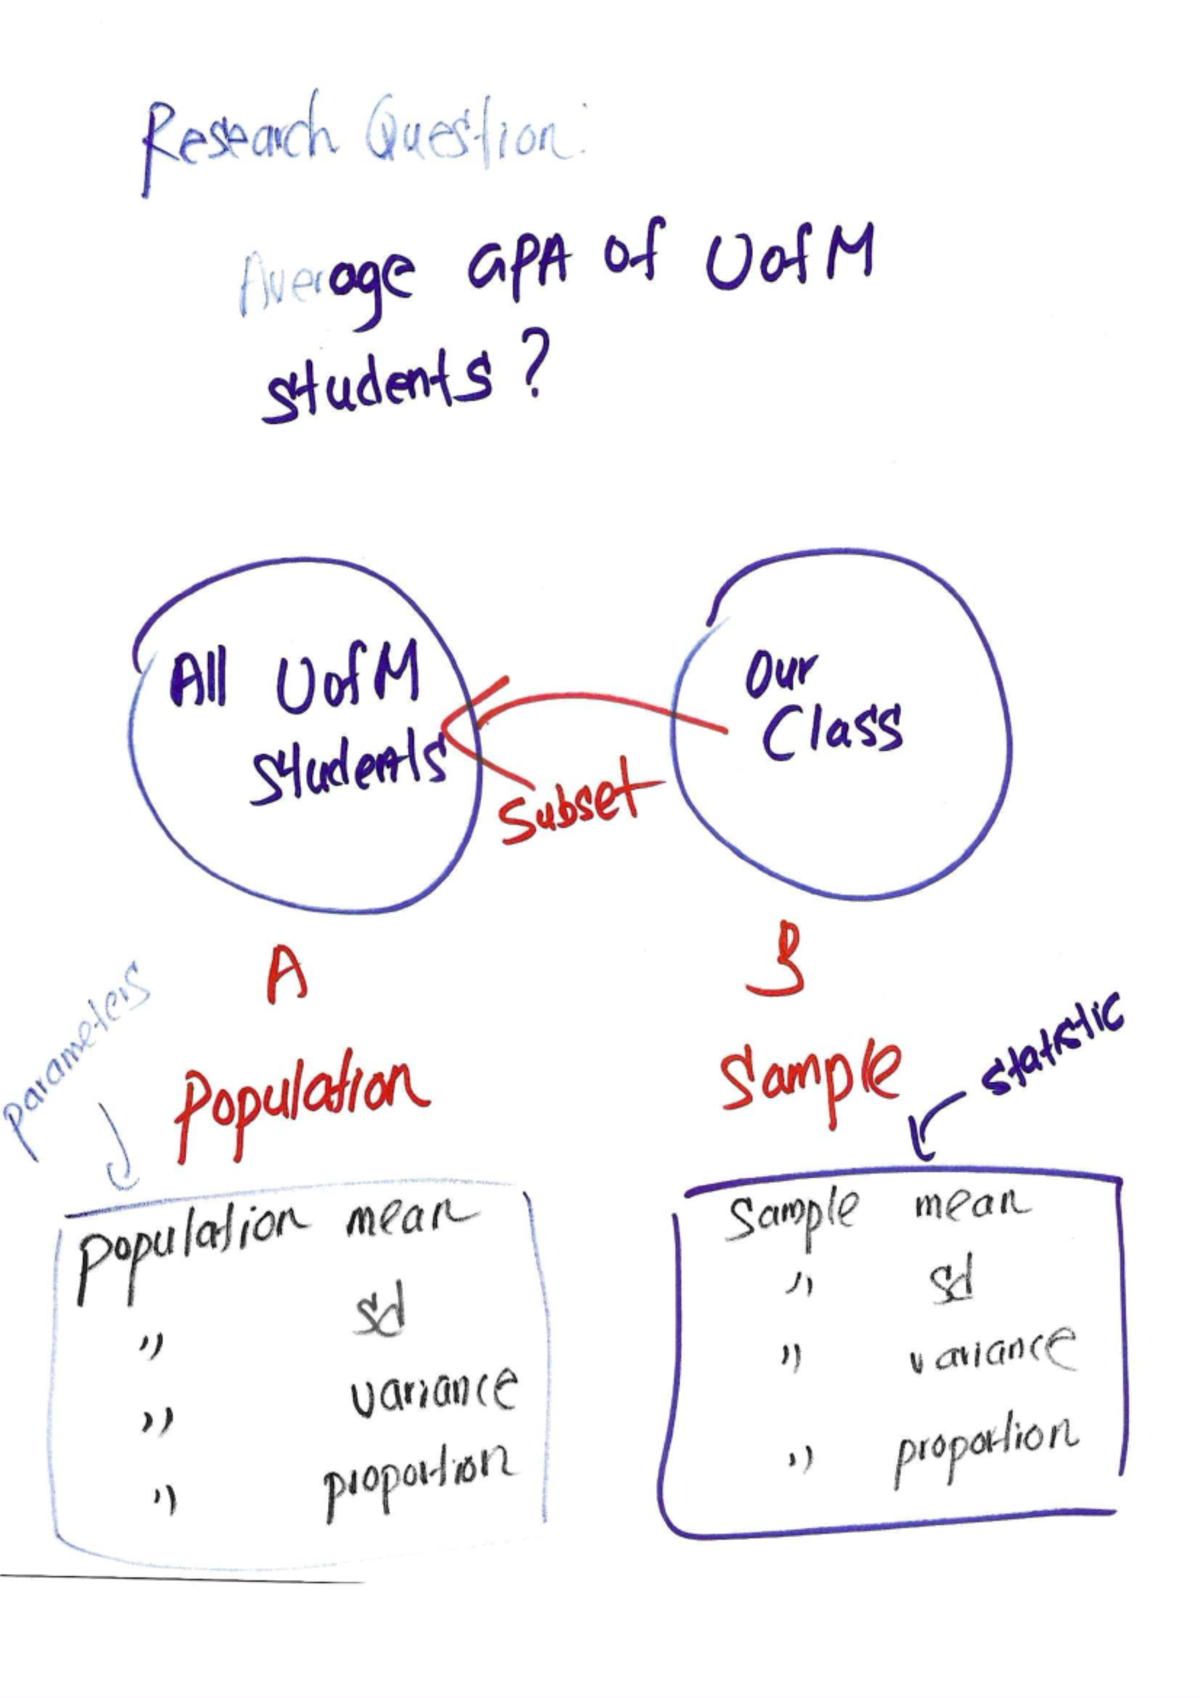 Research Question:
Average GPA of UofM
students?
All UofM
students
Our
Class
Subset
A
B
parameters
Population
Sample
statistic
population mean
" sd
" variance
" proportion
Sample mean
" sd
" variance
" proportion